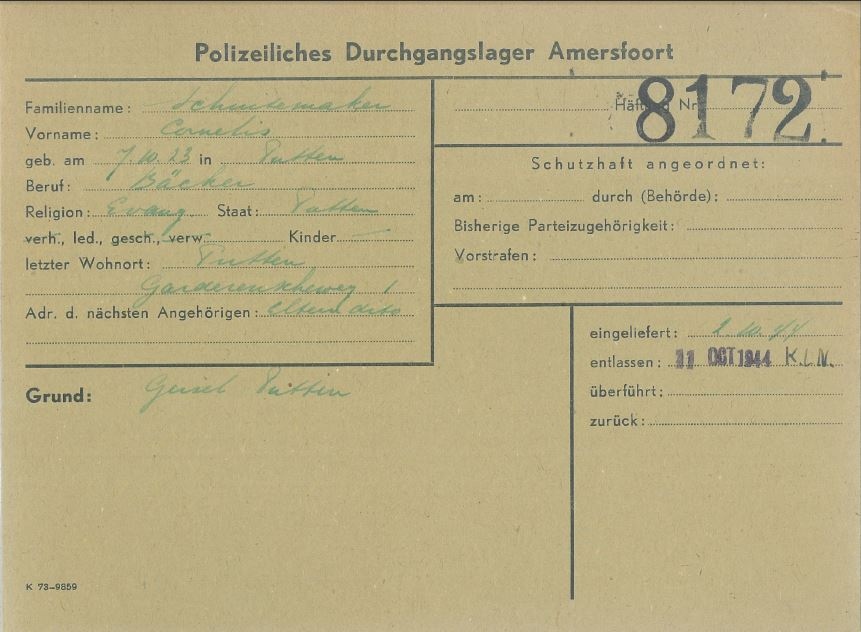 Polizeiliches Durchgangslager Amersfoort
Familienname: Schuitemaker
Vorname: Cornelis
geb. am 7.10.23 in Putten
Beruf: Bäcker
Religion: Evang. Staat: Putten
verh., led., gesch., verw. Kinder —
letzter Wohnort: Putten
Garderenscheweg 1
Adr. d. nächsten Angehörigen: Eltern dito
Grund: Geisel Putten
Häftling Nr. 8172
Schutzhaft angeordnet:
am: durch (Behörde):
Bisherige Parteizugehörigkeit:
Vorstrafen:
eingeliefert: 2.10.44
entlassen: 11 OCT 1944 K.L.N.
überführt:
zurück:
K 73-9859